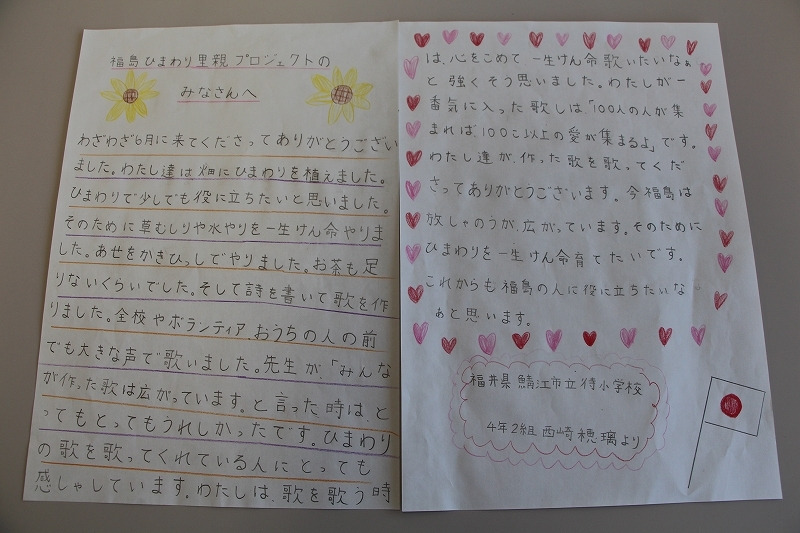 福島ひまわり里親プロジェクトの
みなさんへ
わざわざ6月に来てくださってありがとうござい
ました。わたし達は畑にひまわりを植えました。
ひまわりで少しでも役に立ちたいと思いました。
そのために草むしりや水やりを一生けん命やりま
した。あせをかきひっしでやりました。お茶も足
りないくらいでした。そして詩を書いて歌を作
りました。全校やボランティア、おうちの人の前
でも大きな声で歌いました。先生が、「みんな
が作った歌は広がっています。と言った時は、と
ってもとってもうれしかったです。ひまわり
の歌を歌ってくれている人にとっても
感しゃしています。わたしは、歌を歌う時
は、心をこめて、一生けん命歌いたいなぁ
と強くそう思いました。わたしが一
番気に入った歌しは、「100人の人が集
まれば、100こ以上の愛が集まるよ」です。
わたし達が、作った歌を歌ってくだ
さってありがとうございます。今福島は
放しゃのうが、広がっています。そのために
ひまわりを一生けん命育てたいです。
これからも福島の人に役に立ちたいな
ぁと思います。
福井県鯖江市立待小学校
4年2組 西崎穂璃より